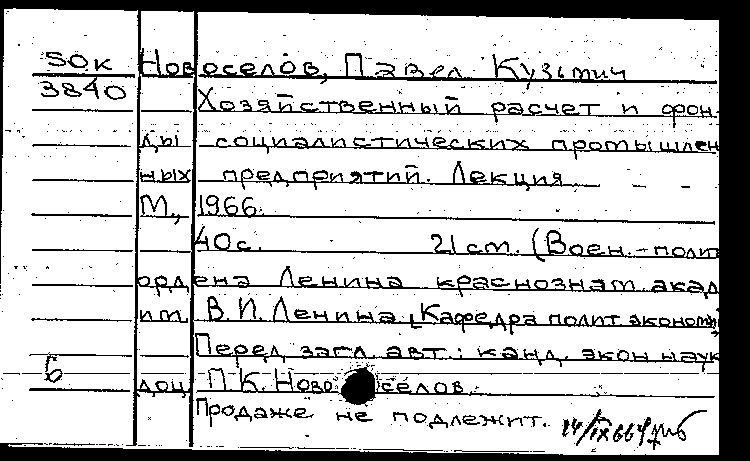 50к Новоселов, Павел Кузьмич
3840 Хозяйственный расчет и фон-
ды социалистических промышлен
ных предприятий. Лекция.
М., 1966.
40с. 21см. (Воен.-полит
ордена Ленина краснознам. акад
им. В.И. Ленина. Кафедра полит. экономи
Перед загл. авт.: канд. экон наук
б доц. П.К. Новоселов.
Продаже не подлежит. 14/IX 66г